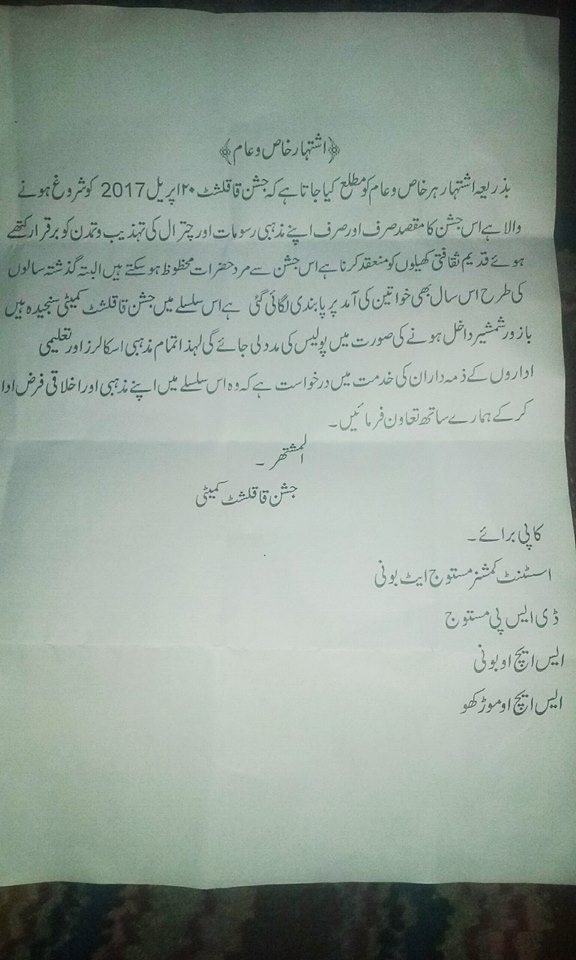 ﴿اشتہار خاص و عام﴾
بذریعہ اشتہار ہر خاص و عام کو مطلع کیا جاتا ہے کہ جشن قاقلشٹ ۲۰ اپریل 2017 کو شروغ ہونے
والا ہے اس جشن کا مقصد صرف اور صرف اپنے مذہبی رسومات اور چترال کی تہذیب و تمدن کو برقرار رکھتے
ہوئے قدیم ثقافتی کھیلوں کو منعقد کرنا ہے اس جشن سے مرد حضرات محظوظ ہو سکتے ہیں البتہ گذشتہ سالوں
کی طرح اس سال بھی خواتین کی آمد پر پابندی لگائی گئی ہے اس سلسلے میں جشن قاقلشٹ کمیٹی سنجیدہ ہیں
بازور شمشیر داخل ہونے کی صورت میں پولیس کی مدد لی جائے گی لہذا تمام مذہبی اسکالرز اور تعلیمی
اداروں کے ذمہ داران کی خدمت میں درخواست ہے کہ وہ اس سلسلے میں اپنے مذہبی اور اخلاقی فرض ادا
کر کے ہمارے ساتھ تعاون فرمائیں۔
المشتھر۔
جشن قاقلشٹ کمیٹی
کاپی برائے۔
اسسٹنٹ کمشنر مستوج ایٹ بونی
ڈی ایس پی مستوج
ایس ایچ او بونی
ایس ایچ او موڑکھو